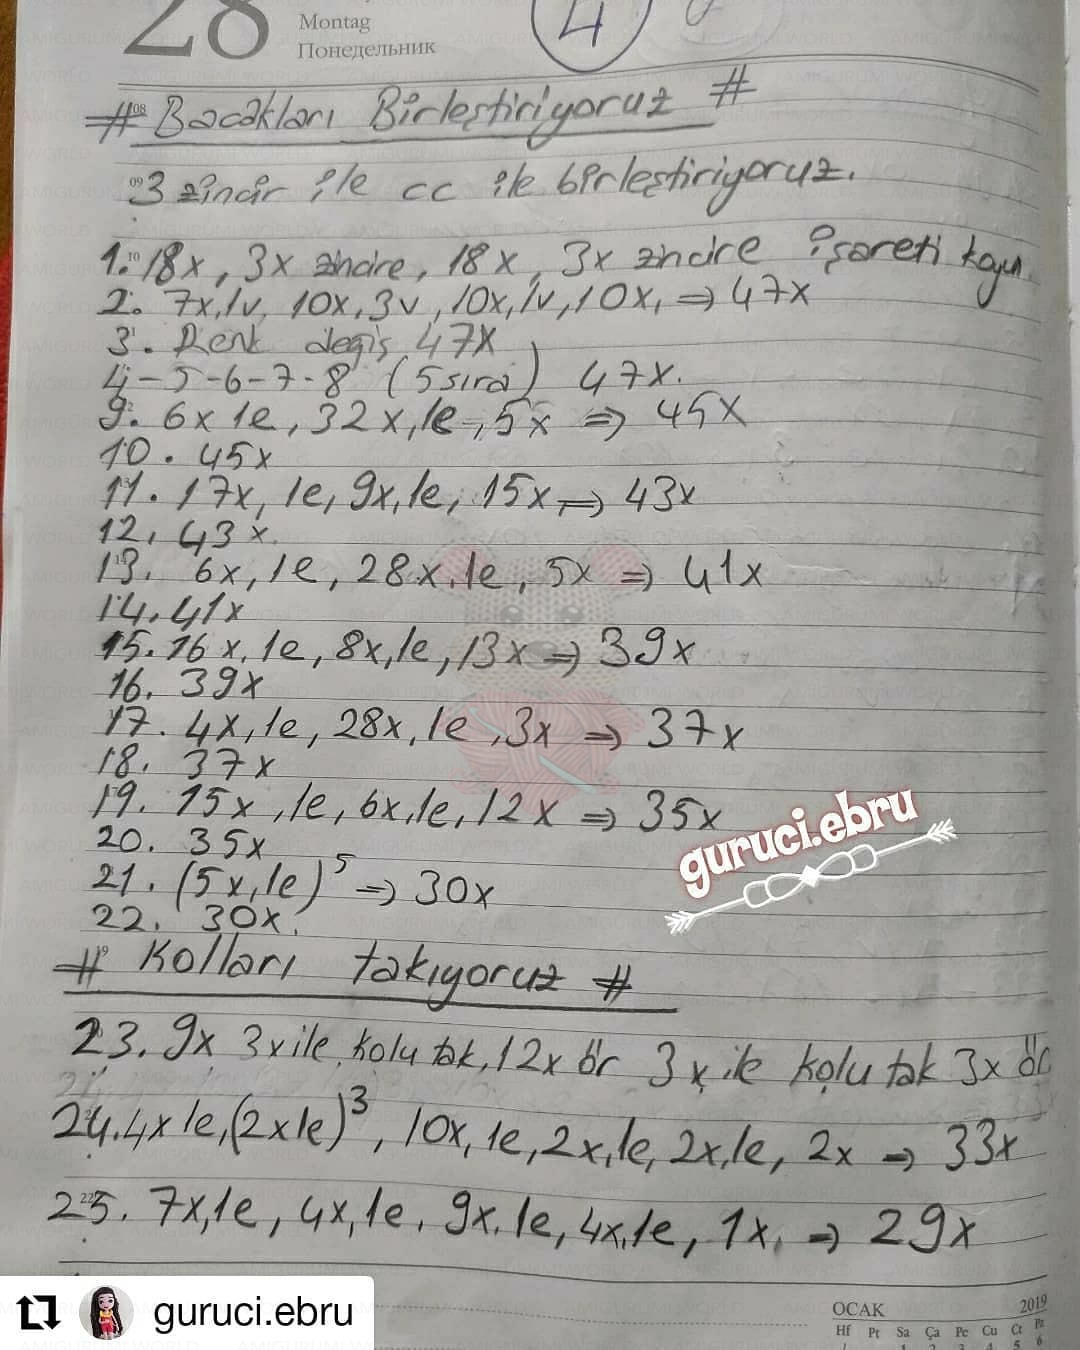 28
Montag
Понедельник
4
# Bacakları Birleştiriyoruz #
3 zincir ile cc ile birleştiriyoruz.
1. 18x, 3x zincire, 18x, 3x zincire işareti koyun
2. 7x,1v, 10x,3v, 10x,1v,10x, => 47x
3. Renk değiş 47x
4-5-6-7-8 (5 sıra) 47x.
9. 6x 1e, 32x,1e, 5x => 45x
10. 45x
11. 17x, 1e, 9x,1e, 15x => 43x
12. 43x.
13. 6x, 1e, 28x,1e, 5x => 41x
14. 41x
15. 16x, 1e, 8x,1e, 13x => 39x
16. 39x
17. 4x,1e, 28x,1e, 3x => 37x
18. 37x
19. 15x,1e, 6x,1e, 12x => 35x
20. 35x
21. (5x,1e)⁵ => 30x
22. 30x.
guruci.ebru
# Kolları takıyoruz #
23. 9x 3x ile kolu tak, 12x ör 3x ile kolu tak 3x ör
24. 4x 1e,(2x1e)³, 10x, 1e, 2x,1e, 2x,1e, 2x => 33x
25. 7x,1e, 4x,1e, 9x,1e, 4x,1e, 1x, => 29x
guruci.ebru
OCAK 2019
Hf Pt Sa Ça Pe Cu Ct Pz